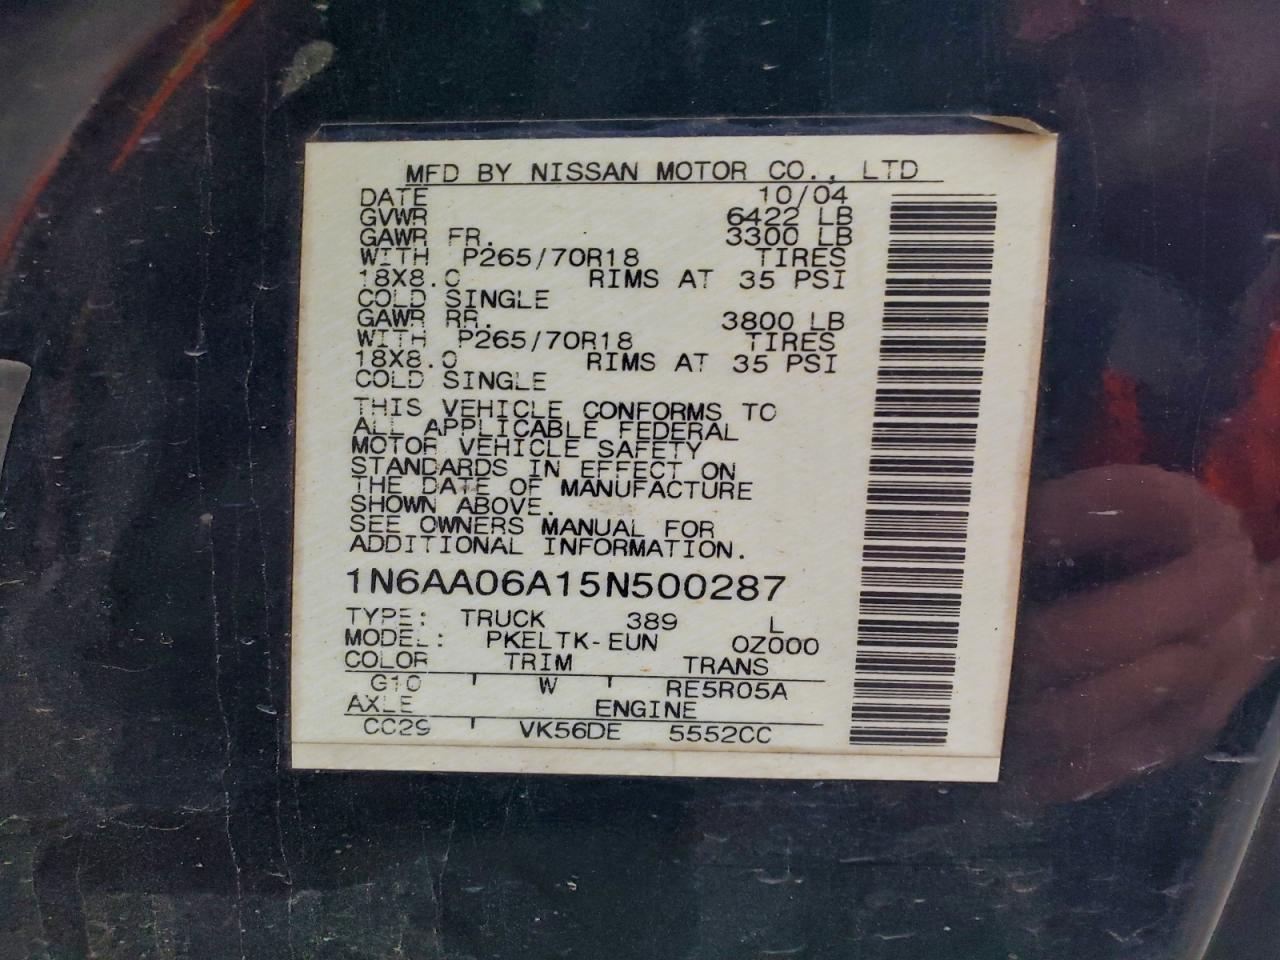 MFD BY NISSAN MOTOR CO., LTD
DATE 10/04
GVWR 6422 LB
GAWR FR. 3300 LB
WITH P265/70R18 TIRES
18X8.0 RIMS AT 35 PSI
COLD SINGLE
GAWR RR. 3800 LB
WITH P265/70R18 TIRES
18X8.0 RIMS AT 35 PSI
COLD SINGLE
THIS VEHICLE CONFORMS TO
ALL APPLICABLE FEDERAL
MOTOR VEHICLE SAFETY
STANDARDS IN EFFECT ON
THE DATE OF MANUFACTURE
SHOWN ABOVE.
SEE OWNERS MANUAL FOR
ADDITIONAL INFORMATION.
1N6AA06A15N500287
TYPE: TRUCK 389 L
MODEL: PKELTK-EUN 0Z000
COLOR TRIM TRANS
G10 W RE5R05A
AXLE ENGINE
CC29 VK56DE 5552CC